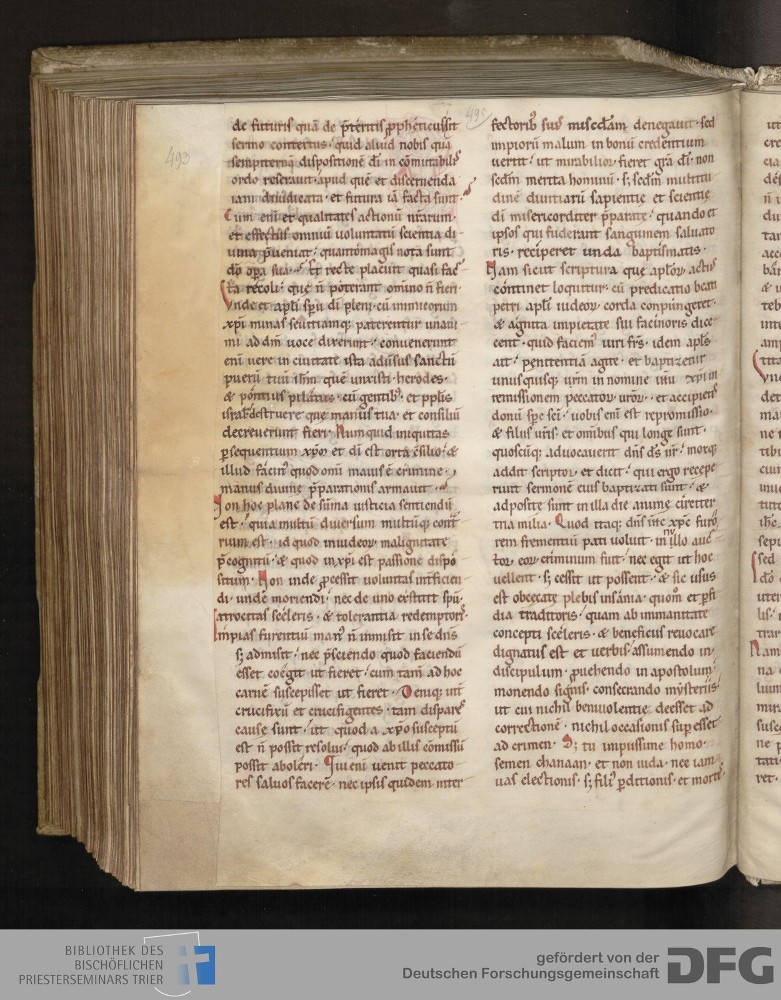 493
495
de futuris quã de p̃teritis ꝓpheticus sit
sermo contextus · quid aliud nobis quã
sempiternã dispositionẽ dĩ in cõmutabilis
ordo reserauit · apud quẽ et discernenda
iam diiudicata · et futura iã facta sunt ·
Cum enĩ et qualitates actionũ nr̃arum ·
et effectus omniũ uoluntatũ scientia di
uina p̃ueniat · quantomagis nota sunt
dõ opa sua · Et recte placuit quasi fac
ta recoli · que n̄ poterant om̃ino n̄ fieri
Vnde et apłi spũ dĩ pleni · cũ inimicorum
xp̃i minas seuitiamq; paterentur unani
mi ad dm̃ uoce dixerunt · conuenerunt
enĩ uere in ciuitate ista aduersus sanctũ
puerũ tuũ ihm̃ quẽ unxisti · herodes ·
& pontius pilatus · cũ gentibꝰ · et pp̃lis
isrł · facere que manus tua · et consiliũ
decreuerunt fieri · Numquid iniquitas
p̱sequentium xp̃m et dĩ est orta c̃silio · &
illud facinꝰ quod om̃i maius ẽ crimine ·
manus diuine p̃parationis armauit ·
Non hoc plane de sum̃a iusticia sentiendũ
est · quia multũ diuersum multũq; cont̃
rium est · id quod in iudeoꝝ malignitate
p̃cognitũ · & quod in xp̃i est passione dispo
situm · Non inde ꝓcessit uoluntas int̃ficien
di · unde moriendi · nec de uno exstitit sp̃u ·
atrocitas sceleris · & tolerantia redemptoris ·
Impias furentiũ manꝰ n̄ inmisit in se dñs
s; admisit · nec p̃sciendo quod faciendũ
esset coegit ut fieret · cum tam̃ ad hoc
carnẽ suscepisset ut fieret · Deniq; int̃
crucifixũ et crucifigentes · tam dispares
cause sunt · ut quod a xp̃o susceptũ
est n̄ possit resolui · quod ab illis cõmissũ
possit aboleri · Qui enĩ uenit peccato
res saluos facere · nec ipsis quidem inter
fectoribꝰ suis misc̃diam denegauit · sed
impiorũ malum in bonũ credentium
uertit · ut mirabilior fieret gr̃a dĩ · non
scdm̃ merita hominũ · s; scdm̃ multitu
dinẽ diuitiarũ sapientie et scientie
dĩ misericorditer p̃parate · quando et
ipsos qui fuderant sanguinem saluato
ris · reciperet unda baptismatis ·
Nam sicut scriptura que apłoꝝ actus
continet loquitur · cũ predicatio beati
petri apłi iudeoꝝ corda conpungeret ·
& agnita impietate sui facinoris dice
rent · quid faciemꝰ uiri fr̃s · idem apłs
ait · penitentiã agite · et baptizetur
unusquisq; ur̃m in nomine ihũ xp̃i in
remissionem peccatoꝝ ur̃oꝝ · et accipietis
donũ sp̃c sc̃i · uobis enĩ est repromissio ·
& filiis ur̃is · et om̃ibus qui longe sunt ·
quoscũq; aduocauerit dñs ds̃ nr̃ · moxq;
addit scriptor et dicit · qui ergo recepe
runt sermonẽ eius baptizati sunt · &
adposite sunt in illa die anime circiter
tria milia · Quod itaq; dñs ihc̃ xp̃c furo
rem frementiũ pati uoluit · in nullo auc
tor eoꝝ criminum fuit · nec egit ut hoc
uellent · s; cessit ut possent · & sic usus
est obcecate plebis insania · quom̃ et p̱fi
dia traditoris · quam ab immanitate
concepti sceleris · & beneficiis reuocare
dignatus est et uerbis · assumendo in
discipulum · ꝓuehendo in apostolum ·
monendo signis · consecrando mysteriis ·
ut cui nichil beniuolentie deesset ad
correctionẽ · nichil occasionis sup̱esset
ad crimen · S; tu impiissime homo ·
semen chanaan · et non iuda · nec iam
uas electionis · s; filiꝰ p̱ditionis · et mortis
BIBLIOTHEK DES
BISCHÖFLICHEN
PRIESTERSEMINARS TRIER
gefördert von der
Deutschen Forschungsgemeinschaft
DFG